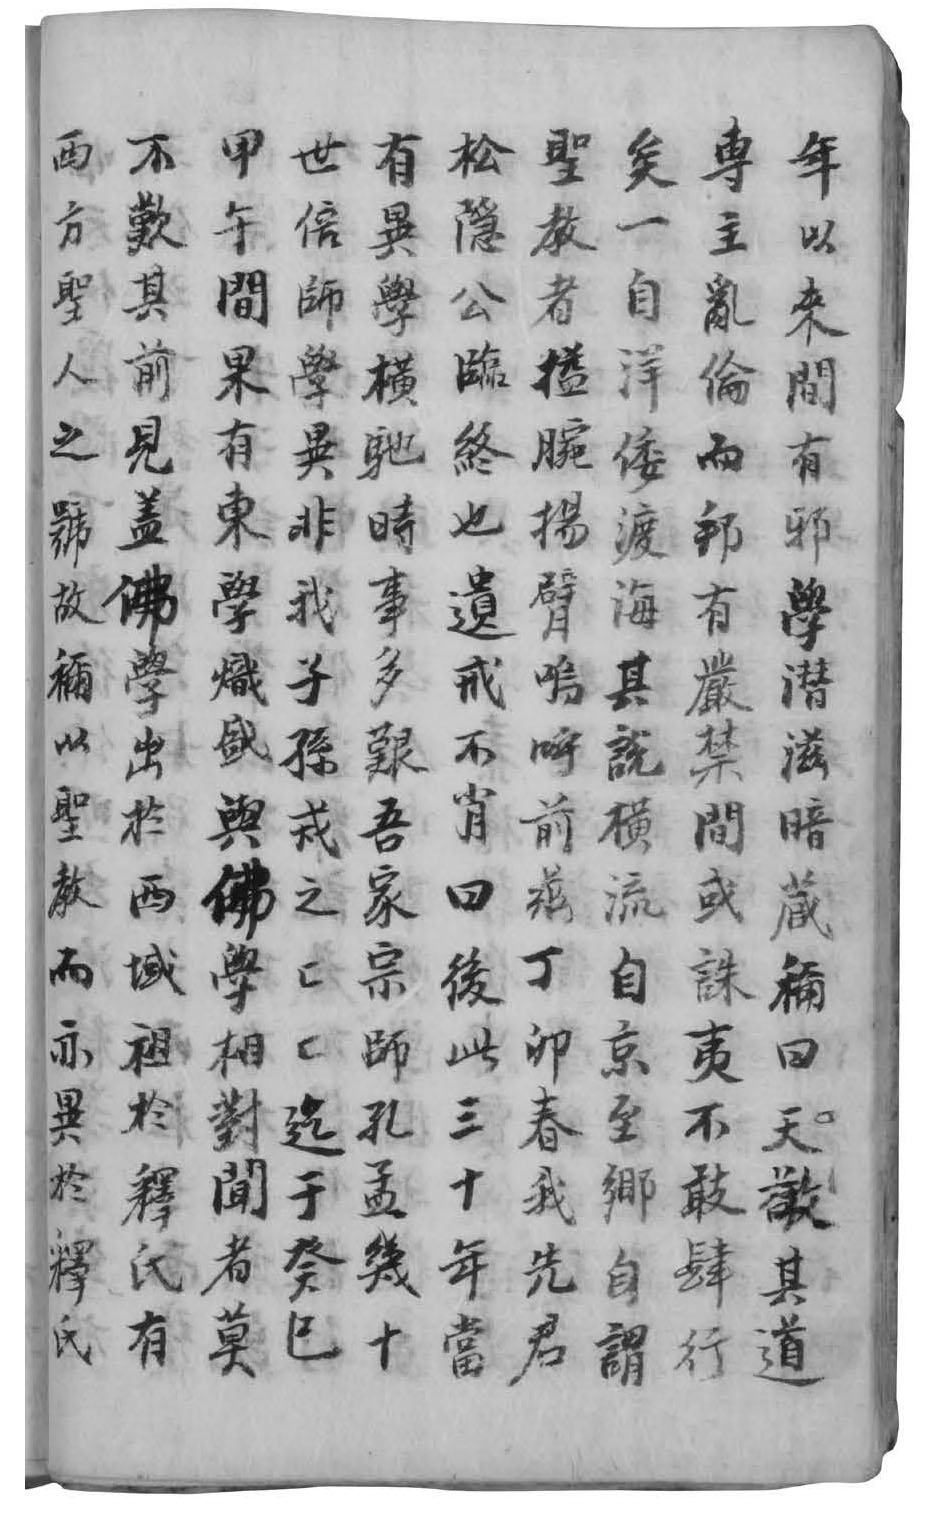 年以來間有邪學潜滋暗蔵稱曰天教其道
専主亂倫而邦有嚴禁間或誅夷不敢肆行
矣一自洋倭渡海其說橫流自京至鄉自謂
聖教者搤腕揚臂嗚呼前丁卯春我先君
松隱公臨終也遺戒不肖曰後此三十年當
有異學橫馳時事多艱吾家宗師孔孟幾十
世倍師學異非我子孫戎之〻〻迄于癸巳
甲午間果有東學熾盛與佛學相對聞者莫
不歎其前見盖佛學出於西域祖於釋氏有
西方聖人之號故稱以聖教而亦異於釋氏